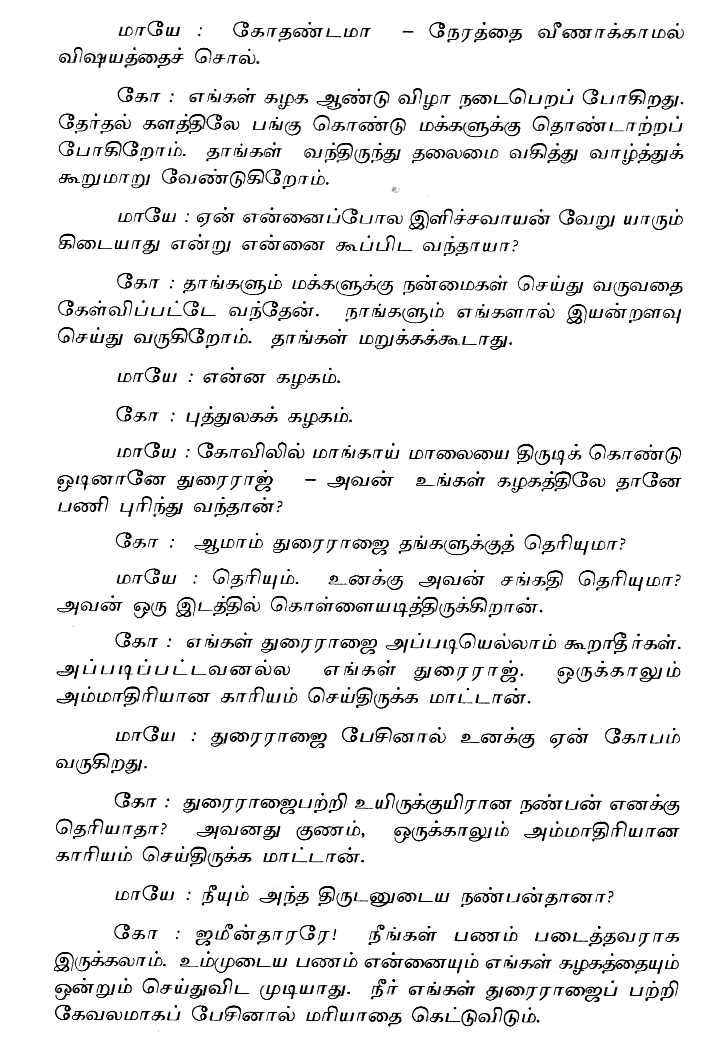 மாயே : கோதண்டமா – நேரத்தை வீணாக்காமல்
விஷயத்தைச் சொல்.
கோ : எங்கள் கழக ஆண்டு விழா நடைபெறப் போகிறது.
தேர்தல் களத்திலே பங்கு கொண்டு மக்களுக்கு தொண்டாற்றப்
போகிறோம். தாங்கள் வந்திருந்து தலைமை வகித்து வாழ்த்துக்
கூறுமாறு வேண்டுகிறோம்.
மாயே : ஏன் என்னைப்போல இளிச்சவாயன் வேறு யாரும்
கிடையாது என்று என்னை கூப்பிட வந்தாயா?
கோ : தாங்களும் மக்களுக்கு நன்மைகள் செய்து வருவதை
கேள்விப்பட்டே வந்தேன். நாங்களும் எங்களால் இயன்றளவு
செய்து வருகிறோம். தாங்கள் மறுக்கக்கூடாது.
மாயே : என்ன கழகம்.
கோ : புத்துலகக் கழகம்.
மாயே : கோவிலில் மாங்காய் மாலையை திருடிக் கொண்டு
ஒடினானே துரைராஜ் – அவன் உங்கள் கழகத்திலே தானே
பணி புரிந்து வந்தான்?
கோ : ஆமாம் துரைராஜை தங்களுக்குத் தெரியுமா?
மாயே : தெரியும். உனக்கு அவன் சங்கதி தெரியுமா?
அவன் ஒரு இடத்தில் கொள்ளையடித்திருக்கிறான்.
கோ : எங்கள் துரைராஜை அப்படியெல்லாம் கூறாதீர்கள்.
அப்படிப்பட்டவனல்ல எங்கள் துரைராஜ். ஒருக்காலும்
அம்மாதிரியான காரியம் செய்திருக்க மாட்டான்.
மாயே : துரைராஜை பேசினால் உனக்கு ஏன் கோபம்
வருகிறது.
கோ : துரைராஜைபற்றி உயிருக்குயிரான நண்பன் எனக்கு
தெரியாதா? அவனது குணம், ஒருக்காலும் அம்மாதிரியான
காரியம் செய்திருக்க மாட்டான்.
மாயே : நீயும் அந்த திருடனுடைய நண்பன்தானா?
கோ : ஜமீன்தாரரே! நீங்கள் பணம் படைத்தவராக
இருக்கலாம். உம்முடைய பணம் என்னையும் எங்கள் கழகத்தையும்
ஒன்றும் செய்துவிட முடியாது. நீர் எங்கள் துரைராஜைப் பற்றி
கேவலமாகப் பேசினால் மரியாதை கெட்டுவிடும்.